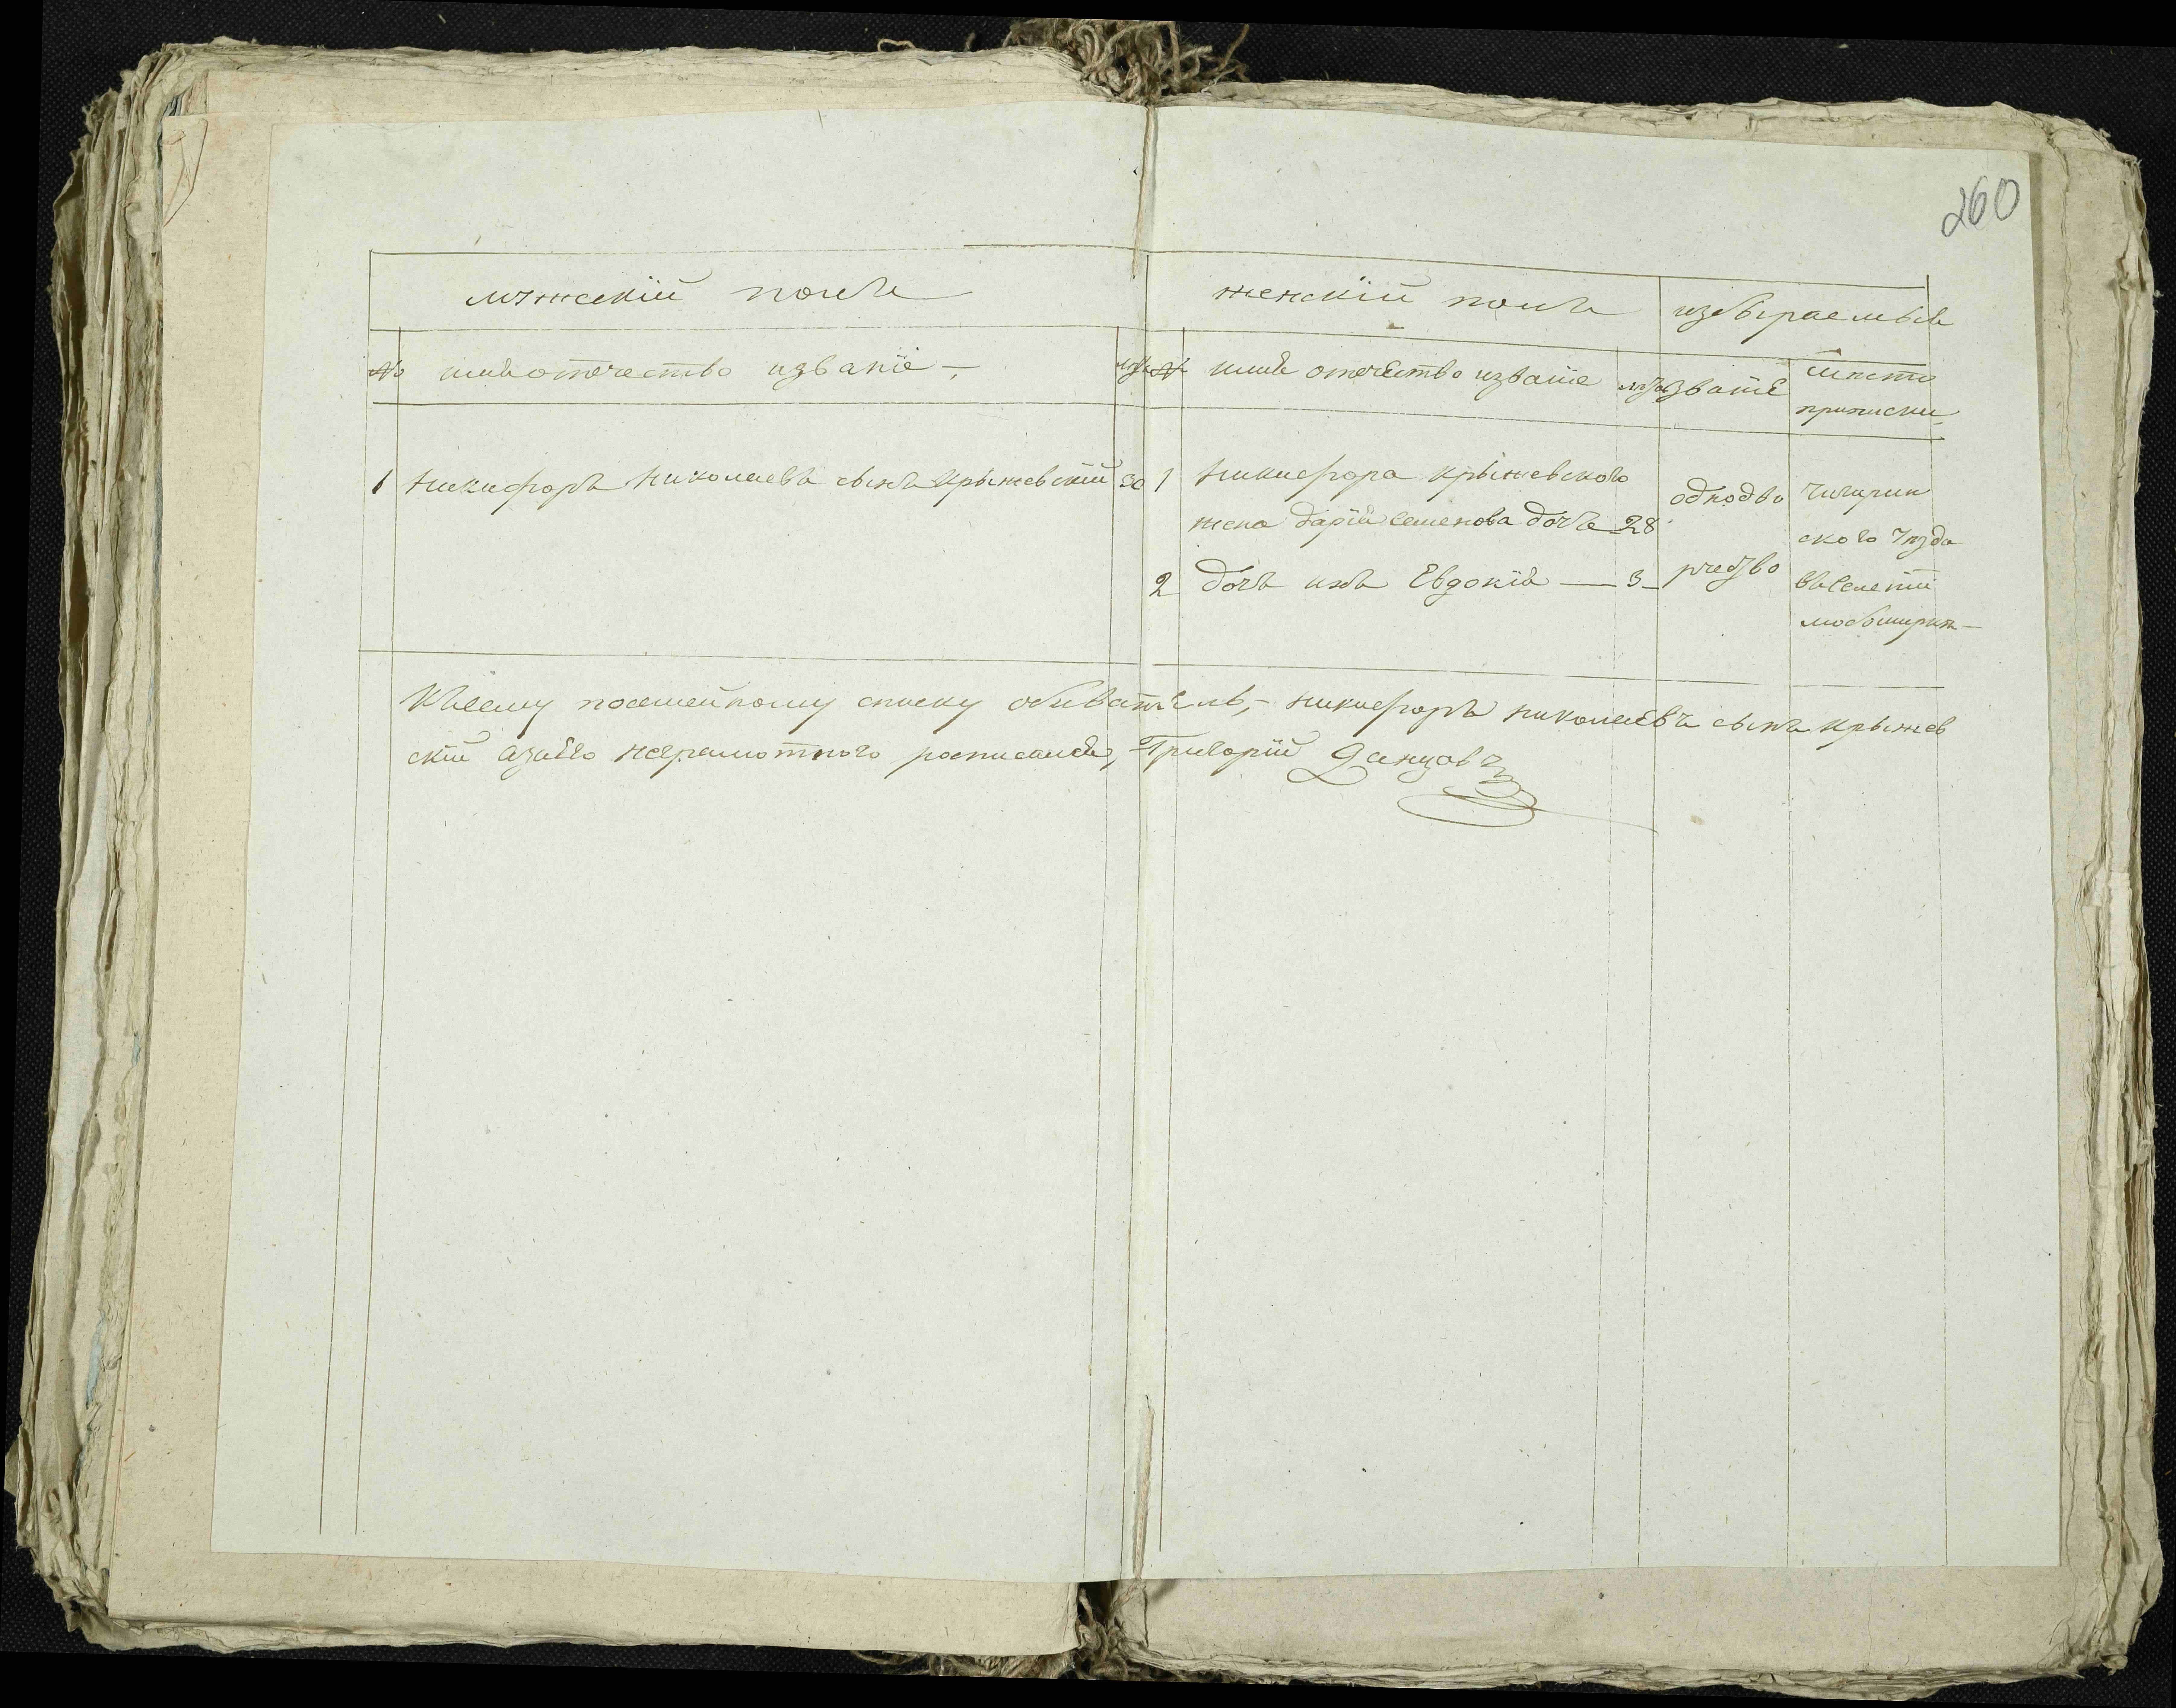 260
мꙋжескій полъ
женскій полъ
избыраемыя
№ имя отечество изваніе
лѣ
№ имя отечество изваніе
лѣ
званіе
мѣсто
приписки
1 Никифоръ Николаевъ сынъ Крыжевскій 30
1 Никифора Крыжевского
жена Дарія Семенова дочь 28
2 дочь ихъ Евдокія — 3
однодво
рческо
Чигирин
ского уѣзда
въселеніи
Ксему посемейному списку обиватель, Никифоръ Николаевъ сынъ Крыжев
скій азанего неграмотного росписался, Григорій Данцовъ